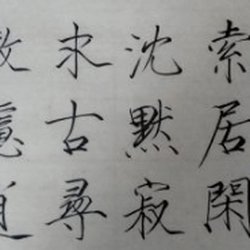 索居閑
沈默寂
求古尋
散慮逍